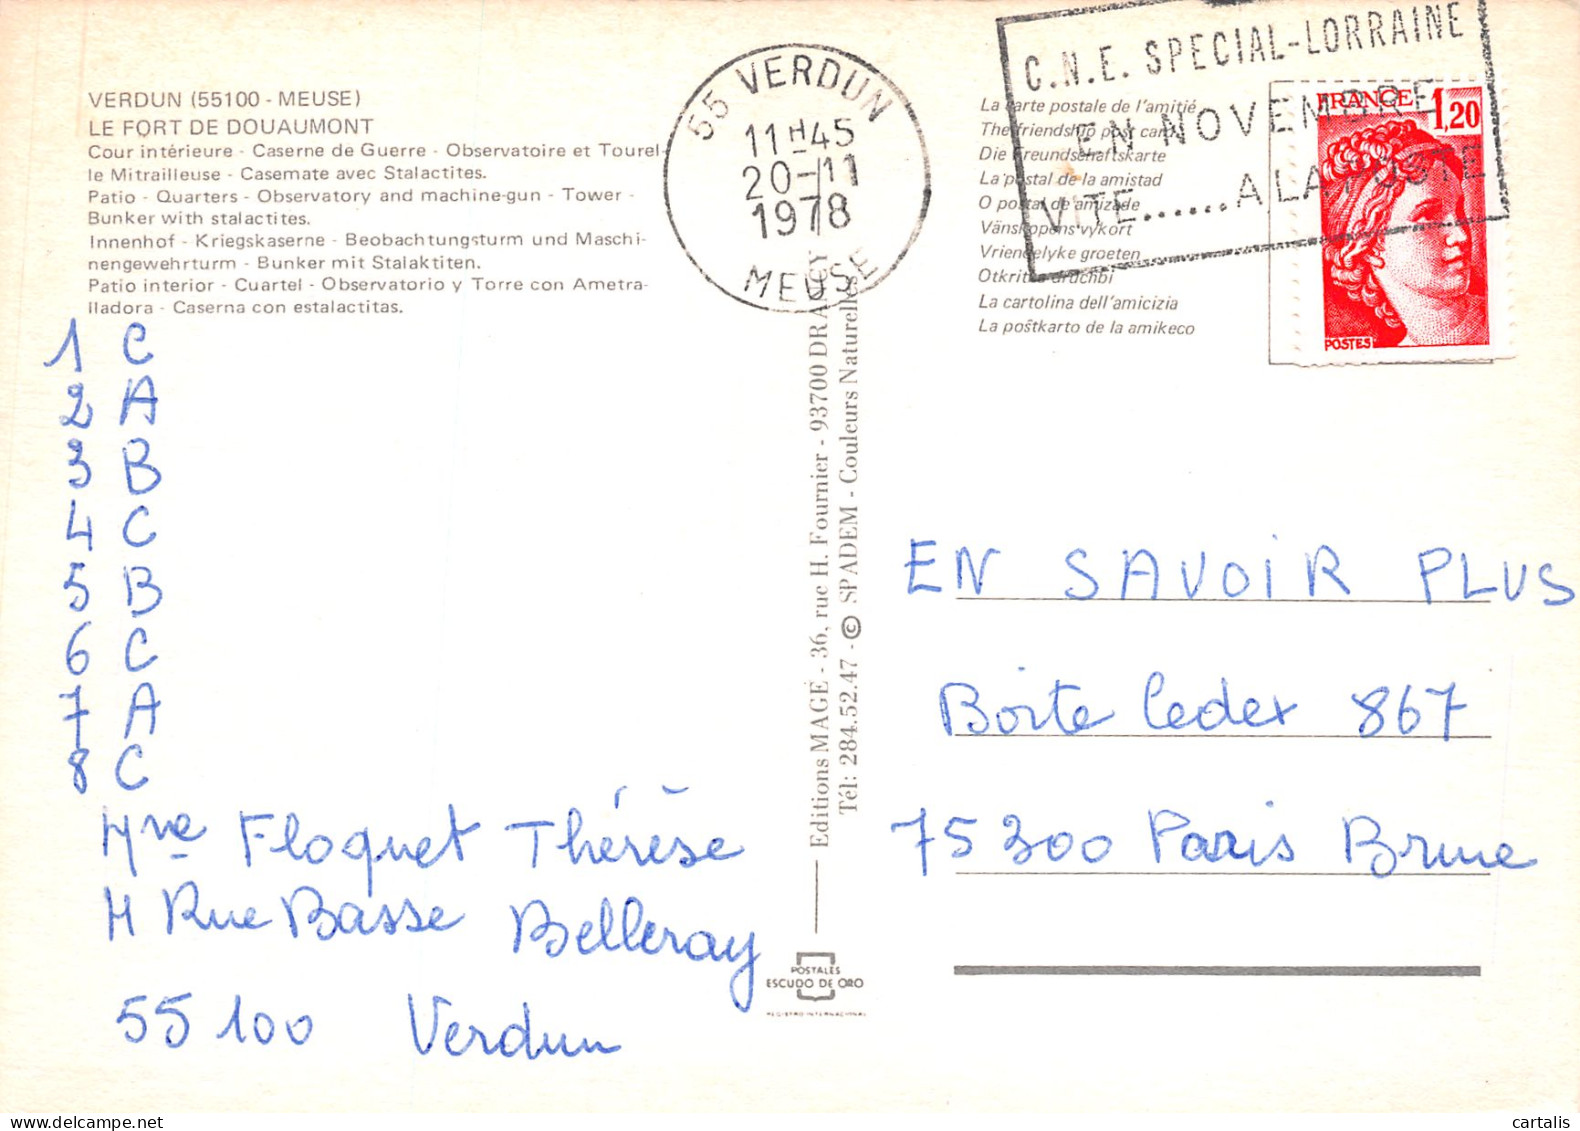 VERDUN (55100 - MEUSE)
LE FORT DE DOUAUMONT
Cour intérieure - Caserne de Guerre - Observatoire et Tourel-
le Mitrailleuse - Casemate avec Stalactites.
Patio - Quarters - Observatory and machine-gun - Tower -
Bunker with stalactites.
Innenhof - Kriegskaserne - Beobachtungsturm und Maschi-
nengewehrturm - Bunker mit Stalaktiten.
Patio interior - Cuartel - Observatorio y Torre con Ametra-
lladora - Caserna con estalactitas.
1 C
2 A
3 B
4 C
5 B
6 C
7 A
8 C
Mme Floquet Thérèse
4 Rue Basse Belleray
55 100 Verdun
55 VERDUN
11H45
20-11
1978
MEUSE
Editions MAGÉ - 36, rue H. Fournier - 93700 DRANCY
Tél: 284.52.47 - © SPADEM - Couleurs Naturelles
POSTALES
ESCUDO DE ORO
REGISTRO INTERNACIONAL
C.N.E. SPECIAL-LORRAINE
EN NOVEMBRE
VITE......A LA POSTE
La carte postale de l'amitié
The friendship post card
Die Freundschaftskarte
La postal de la amistad
O postal de amizade
Vänskapens vykort
Vriendelyke groeten
Otkritka druchbi
La cartolina dell'amicizia
La poŝtkarto de la amikeco
FRANCE 1,20
POSTES
EN SAVOIR PLUS
Boite Cedex 867
75300 Paris Brune
cartalis